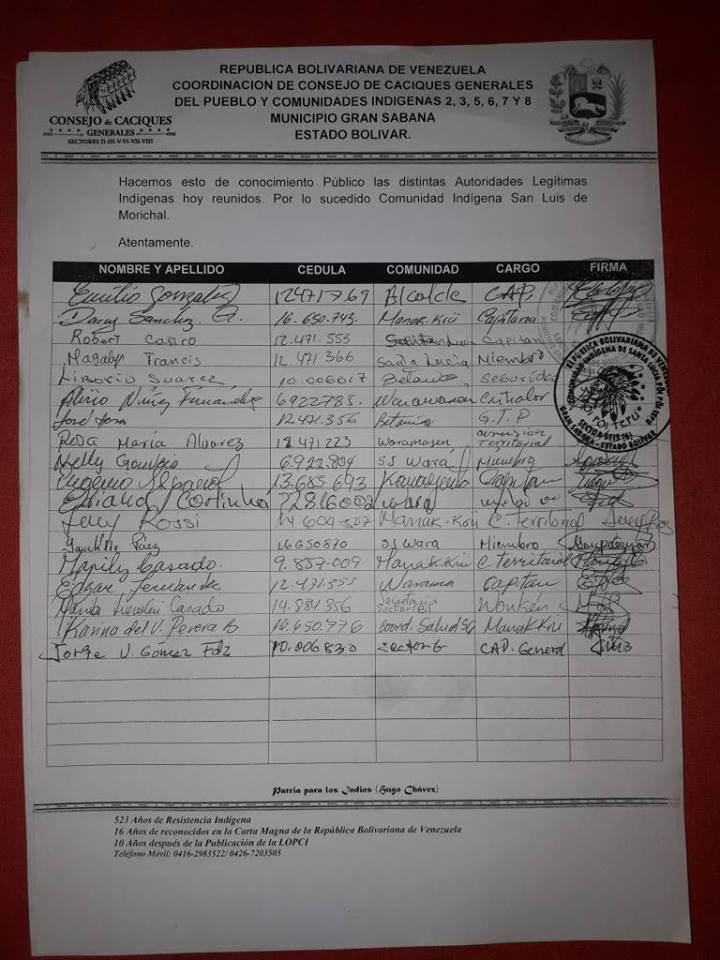 CONSEJO de CACIQUES
GENERALES
SECTORES II-III-V-VI-VII-VIII
REPUBLICA BOLIVARIANA DE VENEZUELA
COORDINACION DE CONSEJO DE CACIQUES GENERALES
DEL PUEBLO Y COMUNIDADES INDIGENAS 2, 3, 5, 6, 7 Y 8
MUNICIPIO GRAN SABANA
ESTADO BOLIVAR.
Hacemos esto de conocimiento Público las distintas Autoridades Legítimas
Indígenas hoy reunidos. Por lo sucedido Comunidad Indígena San Luis de
Morichal.
Atentamente.
NOMBRE Y APELLIDO CEDULA COMUNIDAD CARGO FIRMA
Emilio González 12471769 Alcalde CAP.
Sanchez G. 16.650.743. Manak-Krü Capitana
Robert Castro 12.471.553 Capitan
Magalys Francis 12 471 366 Santa Lucia Miembro
Liborio Suarez 10.006017 Betania Segurida
Nuñez Fernandez 6922785. Contralor
José 12.471.356 Betania G.T.P
Rosa María Alvarez 12 471223 Waramasen territorial
Nelly 6.922.804 SS Wará Miembro
Eugenio 13.685.693 Capitan
Cortinha 22816002 wara
Rossi 14 609 507 Manak-Krü C. Territorial
Páez 16650870 SS Wara Miembro
Marily Casado. 9.857-009 Manak-Krü C territorial
Edgar Fernandez 12.471.353 Warama Capitán
Casado 14.884.356 Secretaria Wonkén
Karina del V. Perera 16.650.976 Coord. Salud S6 Manak Krü
Jorge V. Gomez 10.006830 Sector 6 CAP. General
REPUBLICA BOLIVARIANA DE VENEZUELA
COMUNIDAD INDIGENA DE SANTA LUCIA
SECTOR SEIS (6)
GRAN SABANA - ESTADO BOLIVAR
Patria para los Indios (Hugo Chávez)
523 Años de Resistencia Indígena
16 Años de reconocidos en la Carta Magna de la República Bolivariana de Venezuela
10 Años después de la Publicación de la LOPCI
Teléfono Móvil: 0416-2983522/ 0426-7203505